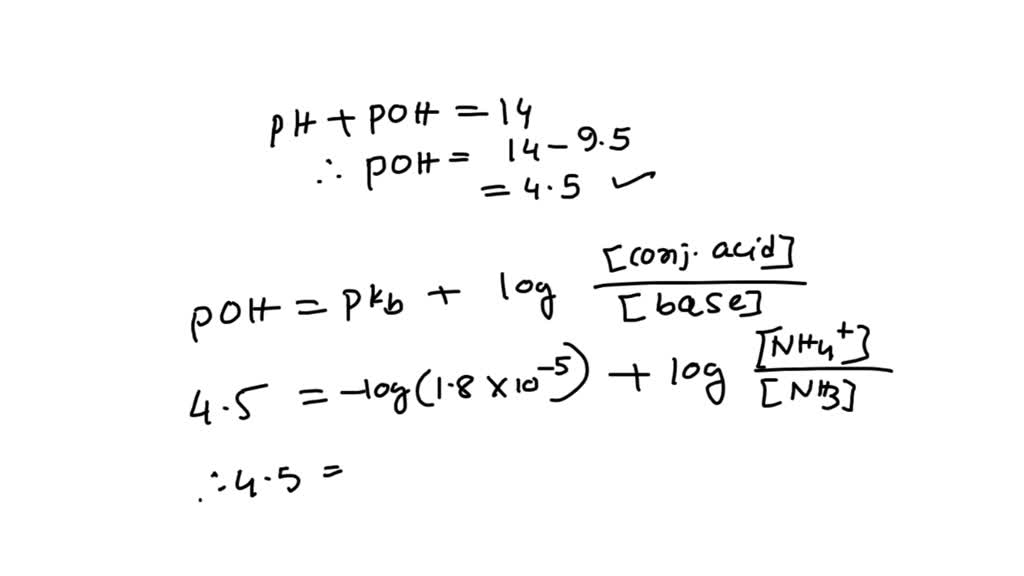 pH + pOH = 14
∴ pOH = 14 - 9.5
= 4.5 ✓
pOH = pkb + log [conj. acid] / [base]
4.5 = -log(1.8 × 10^-5) + log [NH4+] / [NH3]
∴ 4.5 =